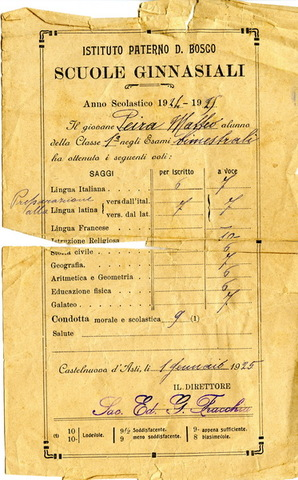 ISTITUTO PATERNO D. BOSCO
SCUOLE GINNASIALI
Anno Scolastico 1924 - 1925
Il giovane Peira Matteo alunno
della Classe 1ª negli Esami bimestrali
ha ottenuto i seguenti voti:
SAGGI per iscritto a voce
Lingua Italiana 6 7
Preparazione alla Lingua latina vers. dall'ital. 7 7
vers. dal lat.
Lingua Francese
Istruzione Religiosa 10
Storia civile 6
Geografia 7
Aritmetica e Geometria 6
Educazione fisica 6
Galateo 7
Condotta morale e scolastica 9 (1)
Salute
Castelnuovo d'Asti, li 1 Gennaio 1925
IL DIRETTORE
Sac. Ed. G.
(1) 10 Lodevole. 9½ Soddisfacente. 9- appena sufficiente.
10- 9 meno soddisfacente. 8 Biasimevole.